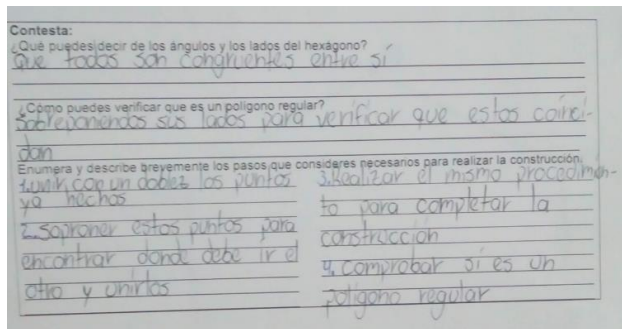 Contesta:
¿Qué puedes decir de los ángulos y los lados del hexágono?
Que todos son congruentes entre sí
¿Cómo puedes verificar que es un polígono regular?
Sobreponiendos sus lados para verificar que estos coinci-
dan
Enumera y describe brevemente los pasos que consideres necesarios para realizar la construcción.
1. unir con un doblez los puntos
ya hechos
2. Saproner estos puntos para
encontrar donde debe ir el
otro y unirlos
3. Realizar el mismo procedimen-
to para completar la
construcción
4. comprobar si es un
poligono regular